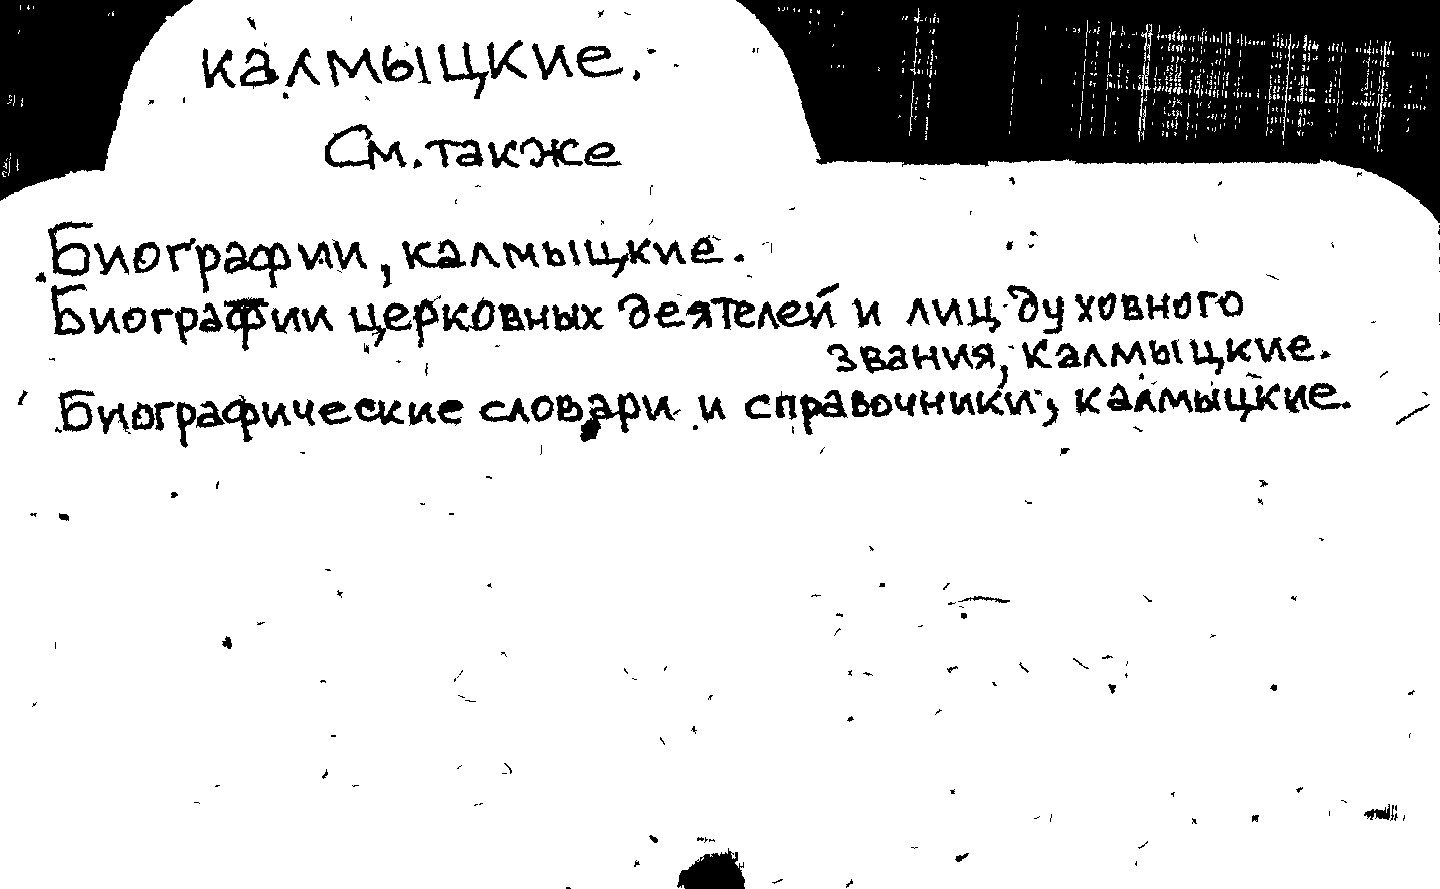 калмыцкие.
См. также
Биографии, калмыцкие.
Биографии церковных деятелей и лиц духовного
звания, калмыцкие.
Биографические словари и справочники, калмыцкие.